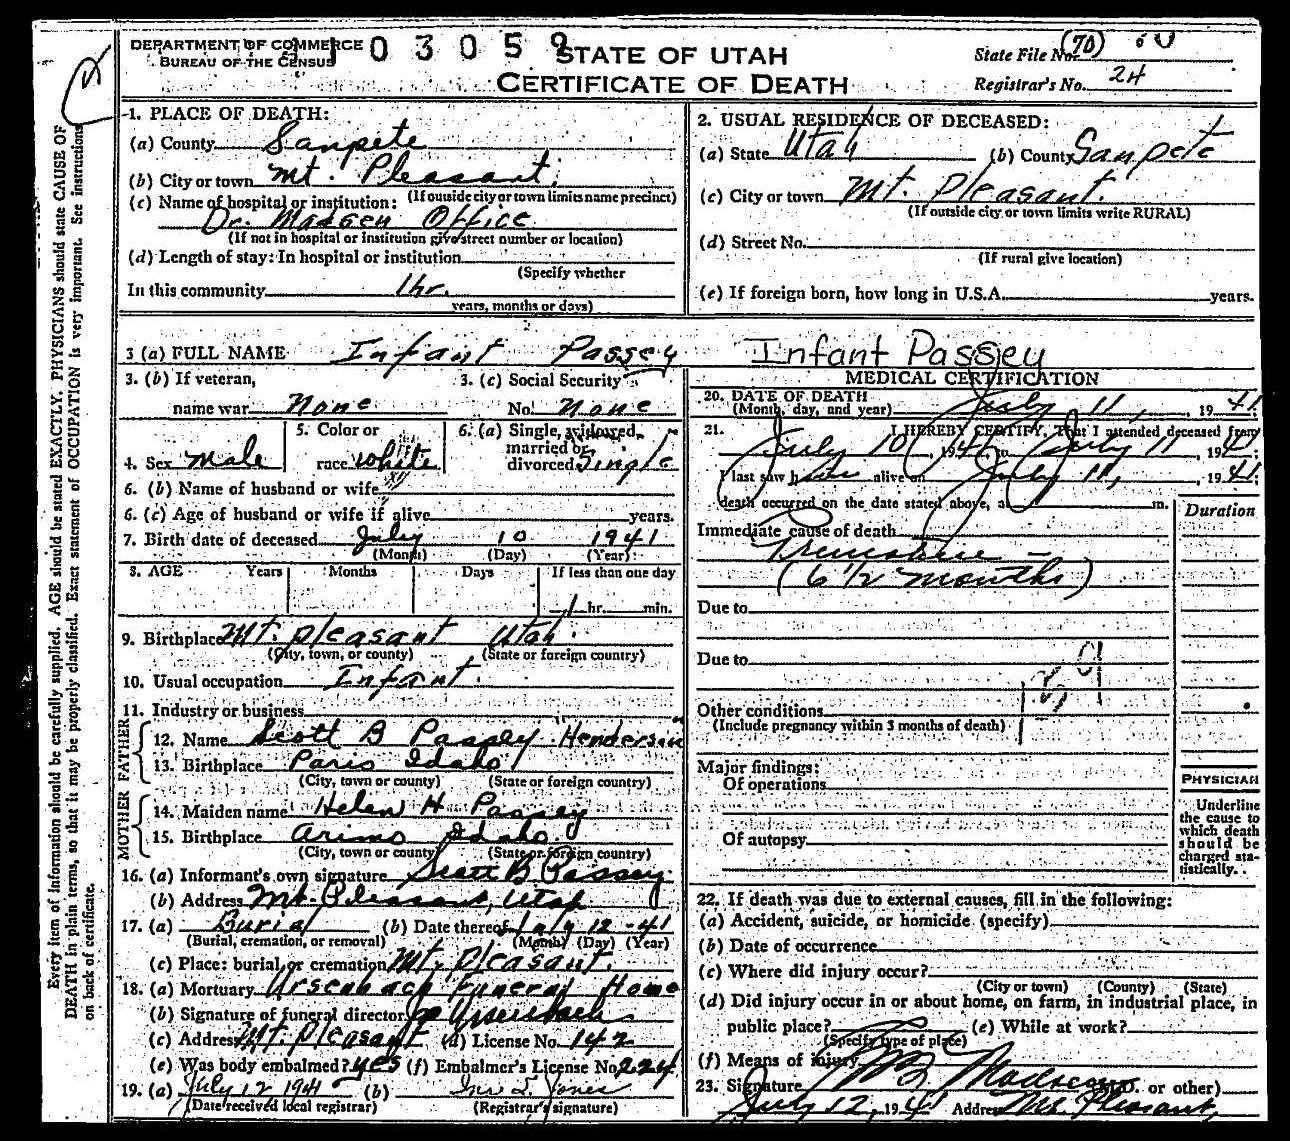 DEPARTMENT OF COMMERCE
BUREAU OF THE CENSUS
103059
STATE OF UTAH
CERTIFICATE OF DEATH
State File No. (70)
Registrar's No. 24
1. PLACE OF DEATH:
(a) County Sanpete
(b) City or town Mt. Pleasant.
(If outside city or town limits name precinct)
(c) Name of hospital or institution:
Dr. Madsen Office
(If not in hospital or institution give street number or location)
(d) Length of stay: In hospital or institution
(Specify whether
In this community 1 hr.
years, months or days)
2. USUAL RESIDENCE OF DECEASED:
(a) State Utah (b) County Sanpete
(c) City or town Mt. Pleasant.
(If outside city or town limits write RURAL)
(d) Street No.
(If rural give location)
(e) If foreign born, how long in U.S.A. years.
3 (a) FULL NAME Infant Passey Infant Passey
3. (b) If veteran,
name war None
3. (c) Social Security
No. None
4. Sex Male
5. Color or
race White
6. (a) Single, widowed,
married or
divorced Single
6. (b) Name of husband or wife
6. (c) Age of husband or wife if alive years.
7. Birth date of deceased July 10 1941
(Month) (Day) (Year)
8. AGE Years Months Days If less than one day
1 hr. min.
9. Birthplace Mt. Pleasant Utah.
(City, town, or county) (State or foreign country)
10. Usual occupation Infant.
11. Industry or business
FATHER
12. Name Scott B Passey "Henderson"
13. Birthplace Paris Idaho
(City, town or county) (State or foreign country)
MOTHER
14. Maiden name Helen H Passey
15. Birthplace Arimo Idaho.
(City, town or county) (State or foreign country)
16. (a) Informant's own signature Scott B Passey
(b) Address Mt. Pleasant, Utah
17. (a) Burial (b) Date thereof July 12 -41
(Burial, cremation, or removal) (Month) (Day) (Year)
(c) Place: burial or cremation Mt. Pleasant.
18. (a) Mortuary Ursenbach Funeral Home
(b) Signature of funeral director Ursenbach
(c) Address Mt. Pleasant (d) License No. 142
(e) Was body embalmed? yes (f) Embalmer's License No. 224
19. (a) July 12 1941 (b) Jones
(Date received local registrar) (Registrar's signature)
MEDICAL CERTIFICATION
20. DATE OF DEATH
(Month, day, and year) July 11, 1941
21. I HEREBY CERTIFY, That I attended deceased from
July 10, 1941 to July 11, 1941;
I last saw him alive on July 11, 1941;
death occurred on the date stated above, at m.
Duration
Immediate cause of death
Premature -
(6 1/2 months)
Due to
Due to
Other conditions
(Include pregnancy within 3 months of death)
Major findings:
Of operations
Of autopsy
PHYSICIAN
Underline
the cause to
which death
should be
charged sta-
tistically.
22. If death was due to external causes, fill in the following:
(a) Accident, suicide, or homicide (specify)
(b) Date of occurrence
(c) Where did injury occur?
(City or town) (County) (State)
(d) Did injury occur in or about home, on farm, in industrial place, in
public place? (e) While at work?
(Specify type of place)
(f) Means of injury
23. Signature Madsen (M.D. or other)
July 12, 1941 Address Mt. Pleasant,
Every item of information should be carefully supplied. AGE should be stated EXACTLY. PHYSICIANS should state CAUSE OF
DEATH in plain terms, so that it may be properly classified. Exact statement of OCCUPATION is very important. See instructions
on back of certificate.